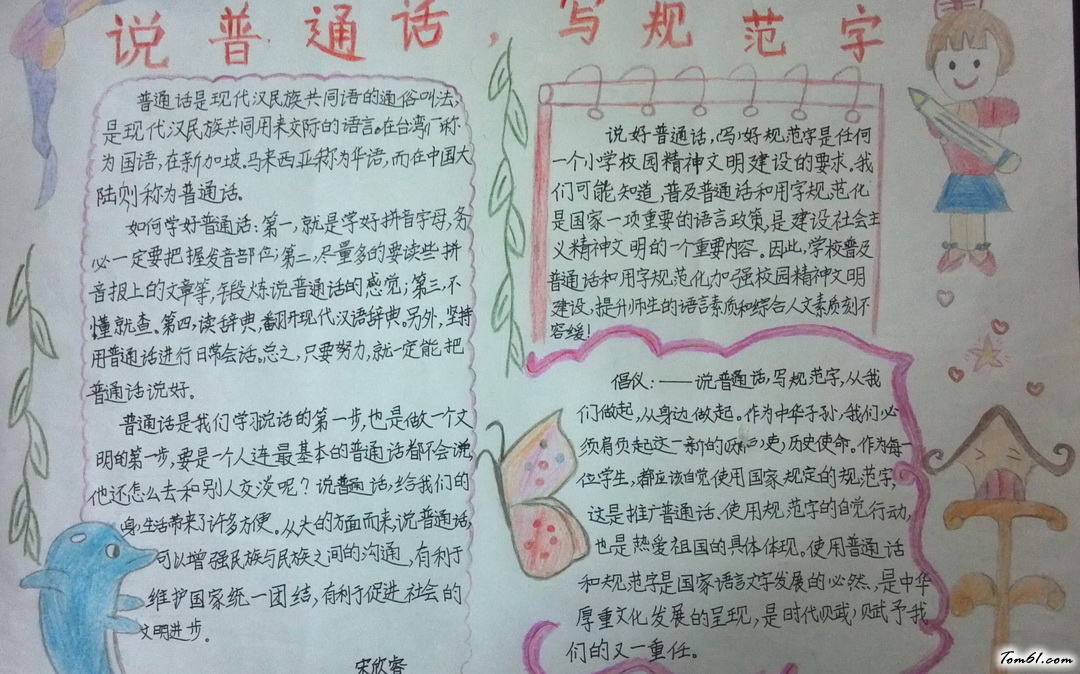 说普通话，写规范字
普通话是现代汉民族共同语的通俗叫法，
是现代汉民族共同用来交际的语言。在台湾称
为国语，在新加坡、马来西亚称为华语，而在中国大
陆则称为普通话。
如何学好普通话：第一，就是学好拼音字母，务
必一定要把握发音部位；第二，尽量多的要读些拼
音报上的文章等，锻炼说普通话的感觉；第三，不
懂就查。第四，读辞典，翻开现代汉语辞典。另外，坚持
用普通话进行日常会话。总之，只要努力，就一定能把
普通话说好。
普通话是我们学习说话的第一步，也是做一个文
明的第一步，要是一个人连最基本的普通话都不会说，
他还怎么去和别人交谈呢？说普通话，给我们的
身生活带来了许多方便。从大的方面而来，说普通话，
可以增强民族与民族之间的沟通，有利于
维护国家统一团结，有利于促进社会的
文明进步。
宋欣睿
说好普通话，写好规范字是任何
一个小学校园精神文明建设的要求。我
们可能知道，普及普通话和用字规范化
是国家一项重要的语言政策，是建设社会主
义精神文明的一个重要内容。因此，学校普及
普通话和用字规范化，加强校园精神文明
建设，提升师生的语言素质和综合人文素质刻不
容缓！
倡仪：——说普通话，写规范字，从我
们做起，从身边做起。作为中华子孙，我们必
须肩负起这一新的历史使命。作为每一
位学生，都应该自觉使用国家规定的规范字，
这是推广普通话、使用规范字的自觉行动，
也是热爱祖国的具体体现。使用普通话
和规范字是国家语言文字发展的必然，是中华
厚重文化发展的呈现，是时代赋予我
们的又一重任。
Tom61.com